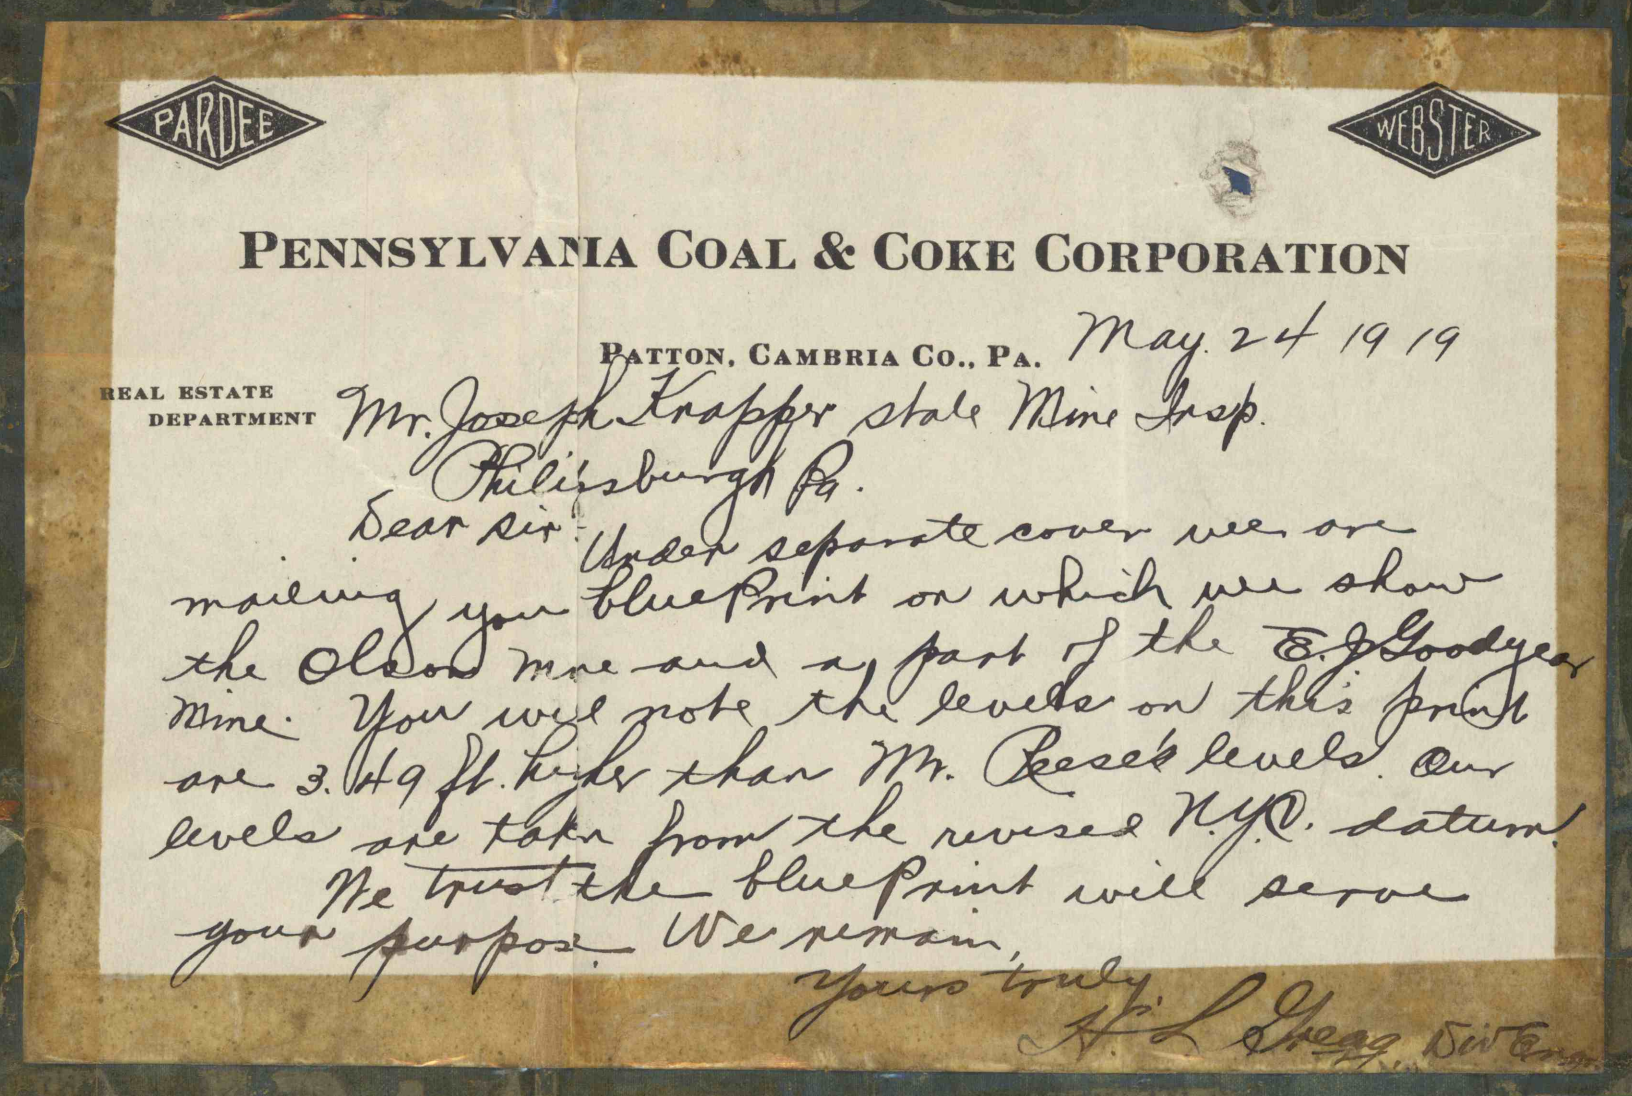 PARDEE
WEBSTER
PENNSYLVANIA COAL & COKE CORPORATION
PATTON, CAMBRIA CO., PA. May. 24 1919
REAL ESTATE
DEPARTMENT
Mr. Joseph Knapper state Mine Insp.
Philipsburgh Pa.
Dear Sir:
Under separate cover we are
mailing you bluePrint on which we show
the Olson Mine and a part of the E. J Goodyear
Mine. You will note the levels on this print
are 3.49 ft. higher than Mr. Reese's levels. Our
levels are takn from the revised N.Y.C. datum.
We trust the bluePrint will serve
your purpose. We remain,
Yours truly
H. L Gregg Div Engr.